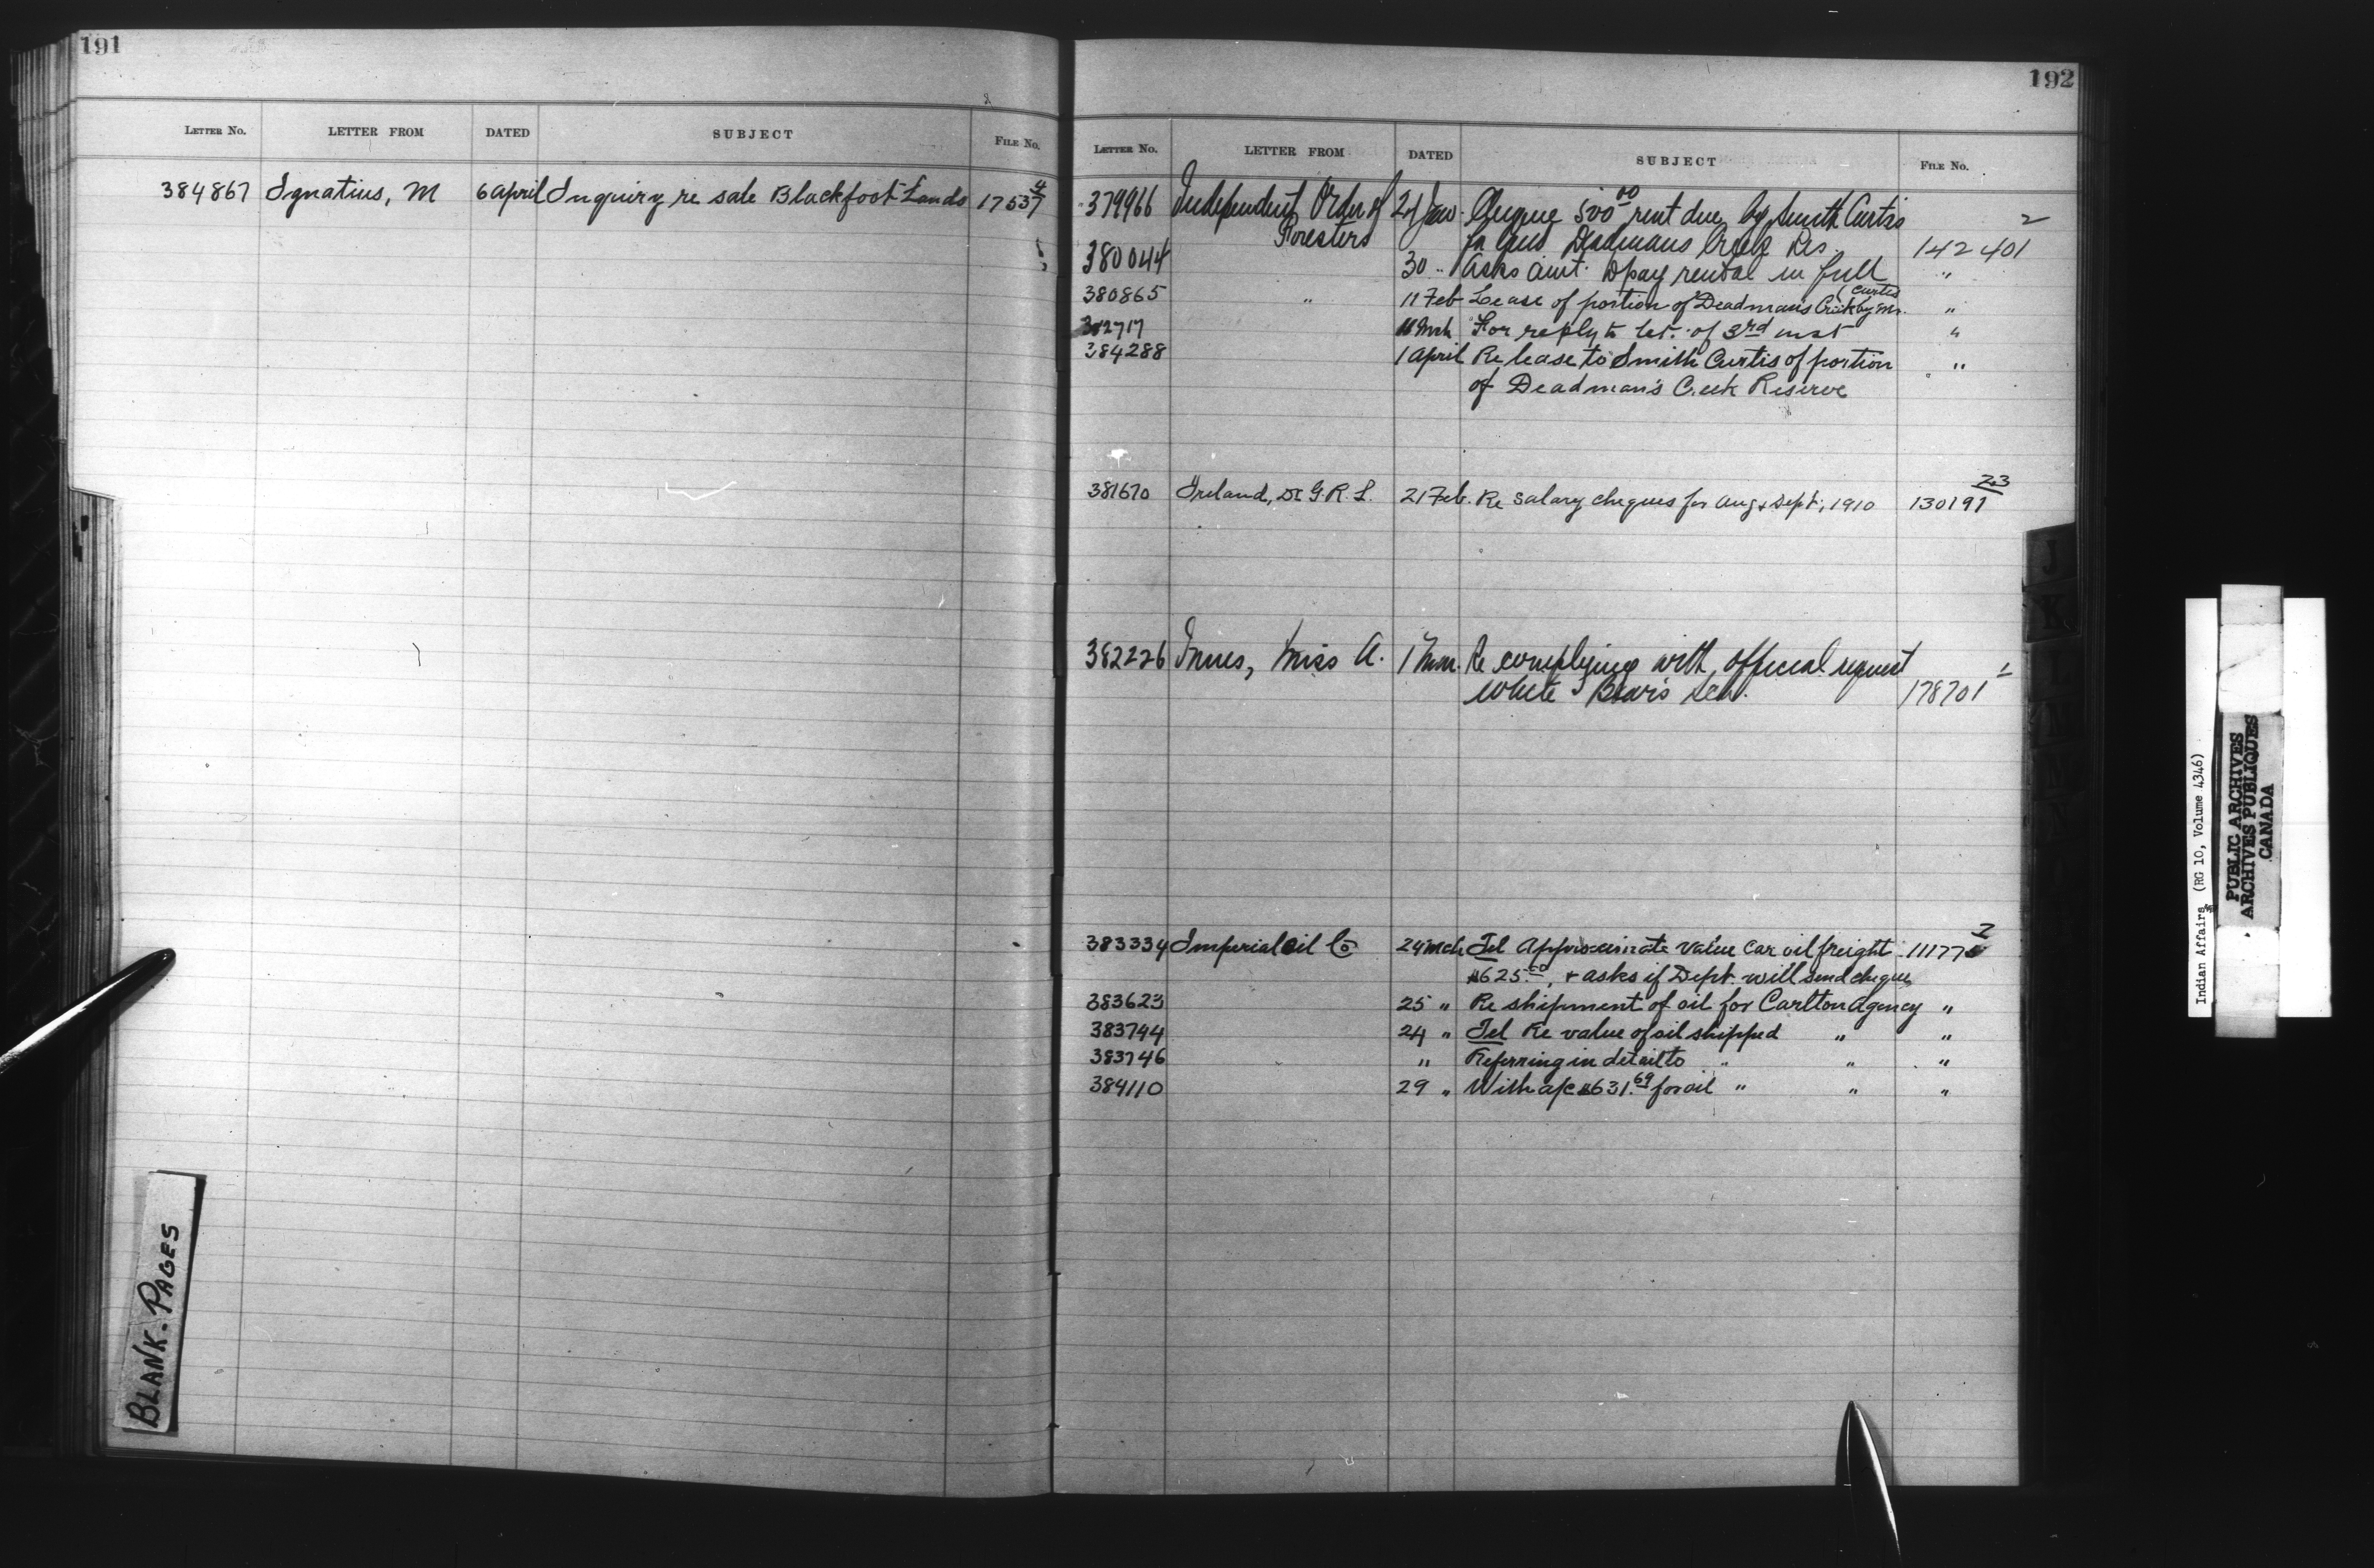 191
LETTER No. LETTER FROM DATED SUBJECT FILE No.
384867 Ignatius, M 6 april Inquiry re sale Blackfoot Lands 17537 4
BLANK-PAGES
192
LETTER No. LETTER FROM DATED SUBJECT FILE No.
379966 Independent Order of Foresters Jan. Cheque 500 00 rent due by Smith Curtis 2
Deadmans Creek Res. 142401
380044 30 " Asks amt. to pay rental in full "
380865 " 11 Feb Lease of portion of Deadmans Creek by Mr. (Curtis "
382717 11 Mch For reply to let. of 3rd inst "
384288 1 April Re lease to Smith Curtis of portion "
of Deadman's Creek Reserve
381670 Ireland, Dr G.R.L. 21 Feb. Re Salary cheques for Aug & Sept., 1910 130191 23
382226 Innes, Miss A. 1 Mar. Re complying with official request
White Bear's Sch. 178701 1
383334 Imperial Oil Co 24 Mch Tel Approximate value car oil freight 111775 2
$625.00, & asks if Dept. will send cheque
383623 25 " Re shipment of oil for Carlton Agency "
383744 24 " Tel Re value of oil shipped " "
383746 " Referring in detail to " " "
384110 29 " With a/c $631.69 for oil " " "
J
K
L
M
Indian Affairs (RG 10, Volume 4346)
PUBLIC ARCHIVES
ARCHIVES PUBLIQUES
CANADA